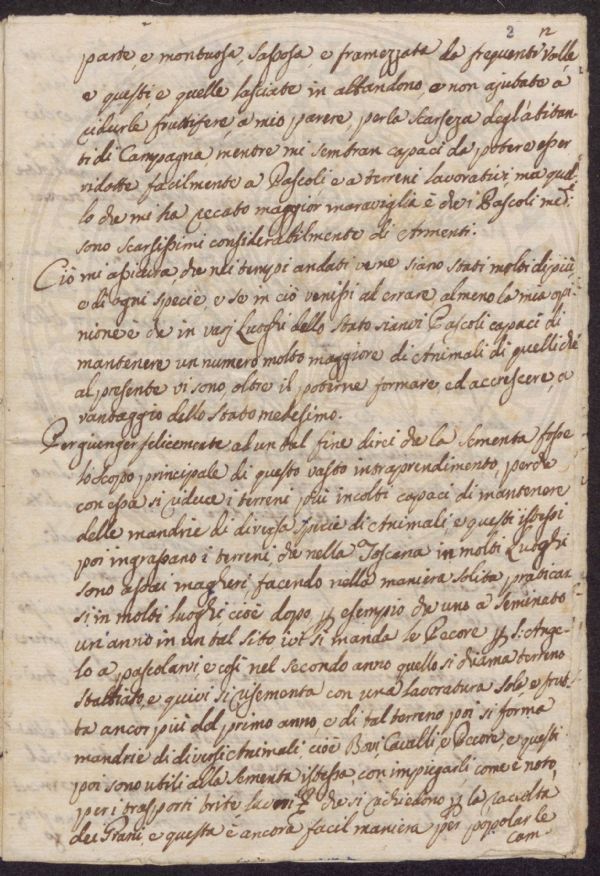 2 n
parte e montuosa, sassosa, e framezzata da frequenti Valli,
e questi, e quelle lasciate in abbandono, e non ajutate a
ridurle fruttifere, a mio parere, per la scarseza degl'abitan
ti di Campagna mentre mi sembran capaci da potere esser
ridotte facilmente a Pascoli e a terreni lavorativi, ma quel
lo che mi ha recato maggior maraviglia è che i Pascoli med:i
sono scarsissimi considerabilmente di Armenti.
Ciò mi assicura, che nei tempi andati ve ne siano stati molti di più
e di ogni specie, e se in ciò venissi ad errare almeno la mia opi
nione è che in varj Luoghi dello Stato sianvi Pascoli capaci di
mantenere un numero molto maggiore di Animali di quelli che
al presente vi sono, oltre il poterne formare, ed accrescere, a
vantaggio dello Stato medesimo.
Per giunger felicemente ad un tal fine direi che la Sementa fosse
lo scopo principale di questo vasto intraprendimento, perche
con essa si riduce i terreni più incolti capaci di mantenere
delle mandrie di diversa spezie di Animali, e questi istessi
poi ingrassano i terreni, che nella Toscana in molti Luoghi
sono assai magheri, facendo nella maniera solita praticar
si in molti luoghi, cioè dopo, p esempio, che uno à seminato
un'anno in un tal sito ivi si manda le Pecore p S: Ange
lo a pascolarvi, e così nel secondo anno quello si chiama terreno
stabbiato, e quivi si risementa con una lavoratura sola e frut
ta ancor più del primo anno, e di tal terreno poi si forma
mandrie di diversi Animali cioè Bovi, Cavalli, e Pecore, e questi
poi sono utili alla sementa istessa, con impiegarli come è noto,
per i trasporti trite che si richiedono p la raccolta
dei Grani e questa è ancora facil maniera per popolar le
cam-